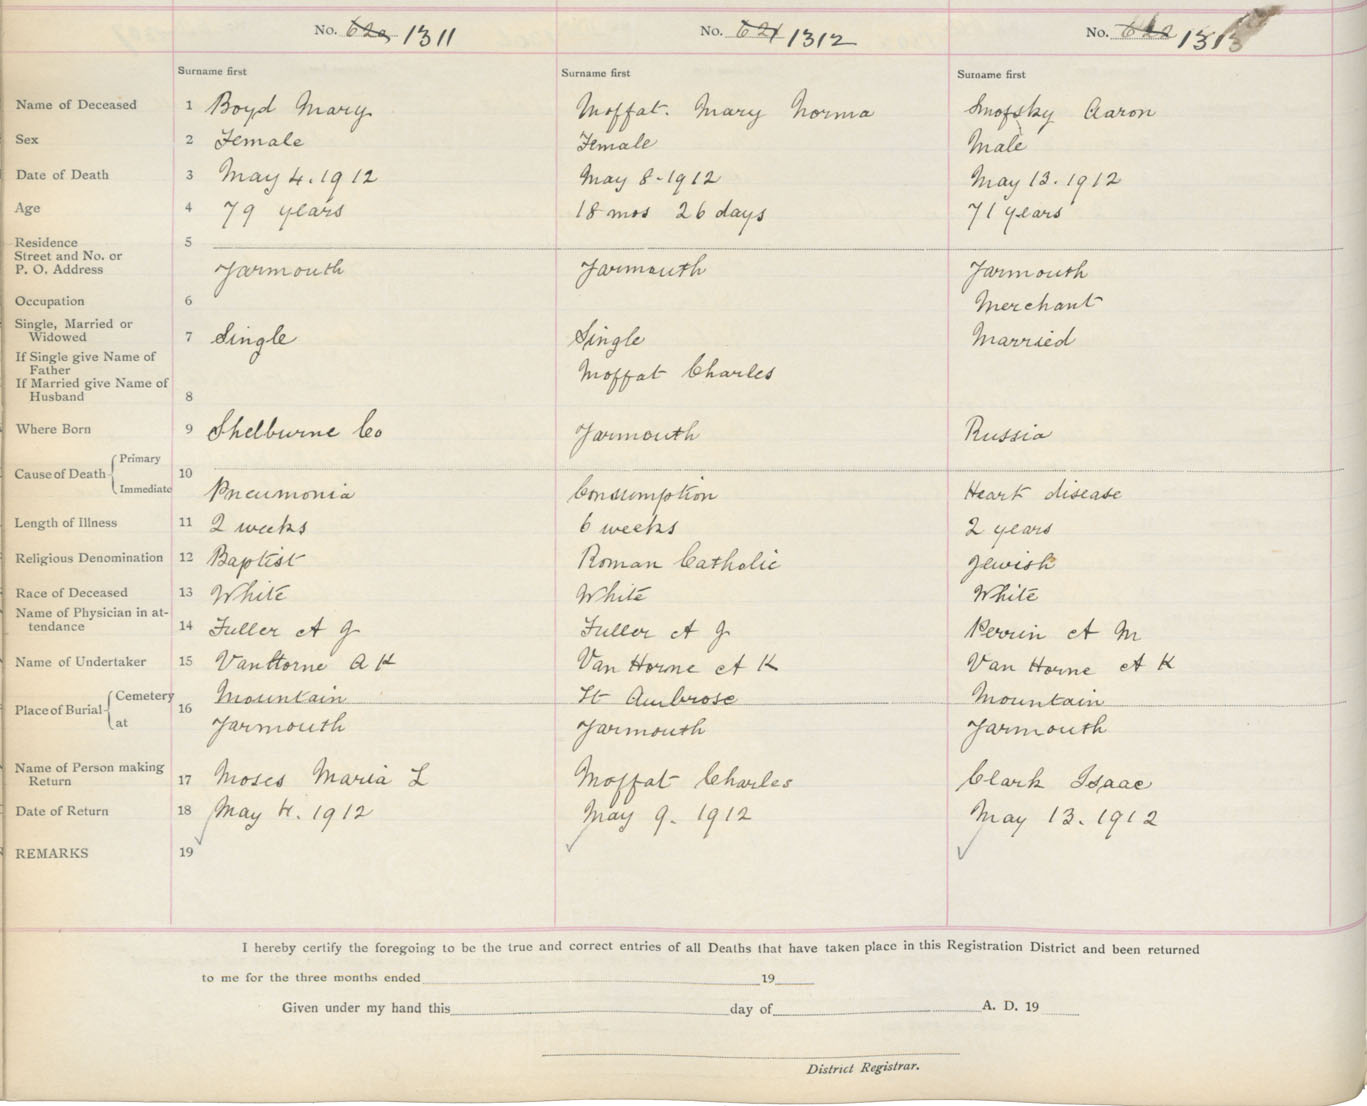 No. 620 1311 No. 621 1312 No. 622 1313
Surname first Surname first Surname first
Name of Deceased 1 Boyd Mary Moffat. Mary Norma Smofsky Aaron
Sex 2 Female Female Male
Date of Death 3 May 4. 1912 May 8-1912 May 13. 1912
Age 4 79 years 18 mos 26 days 71 years
Residence 5
Street and No. or
P. O. Address Yarmouth Yarmouth Yarmouth
Occupation 6 Merchant
Single, Married or
Widowed 7 Single Single Married
If Single give Name of
Father Moffat Charles
If Married give Name of
Husband 8
Where Born 9 Shelburne Co Yarmouth Russia
Cause of Death Primary 10
Immediate Pneumonia Consumption Heart disease
Length of Illness 11 2 weeks 6 weeks 2 years
Religious Denomination 12 Baptist Roman Catholic Jewish
Race of Deceased 13 White White White
Name of Physician in at-
tendance 14 Fuller A J Fuller A J Perrin A M
Name of Undertaker 15 VanHorne A K Van Horne A K Van Horne A K
Place of Burial Cemetery 16 Mountain St Ambrose Mountain
at Yarmouth Yarmouth Yarmouth
Name of Person making
Return 17 Moses Maria L Moffat Charles Clark Isaac
Date of Return 18 May 4. 1912 May 9. 1912 May 13. 1912
REMARKS 19
I hereby certify the foregoing to be the true and correct entries of all Deaths that have taken place in this Registration District and been returned
to me for the three months ended 19
Given under my hand this day of A. D. 19
District Registrar.